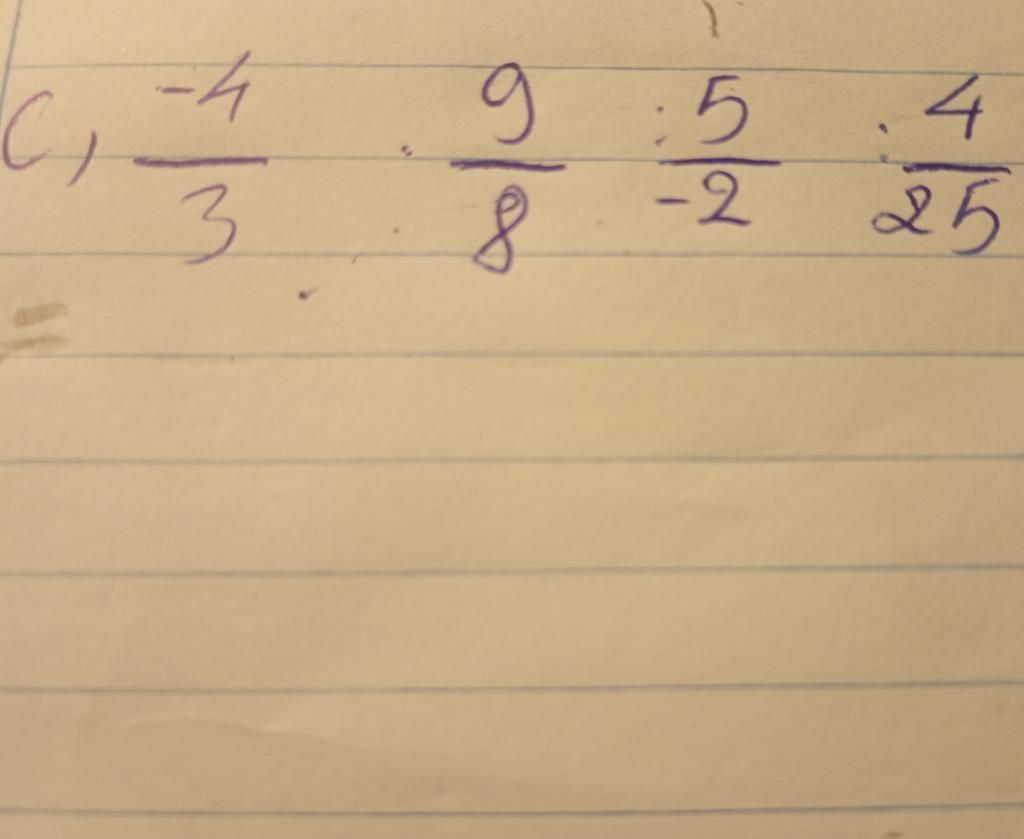 c, -4/3 · 9/8 : 5/-2 : 4/25